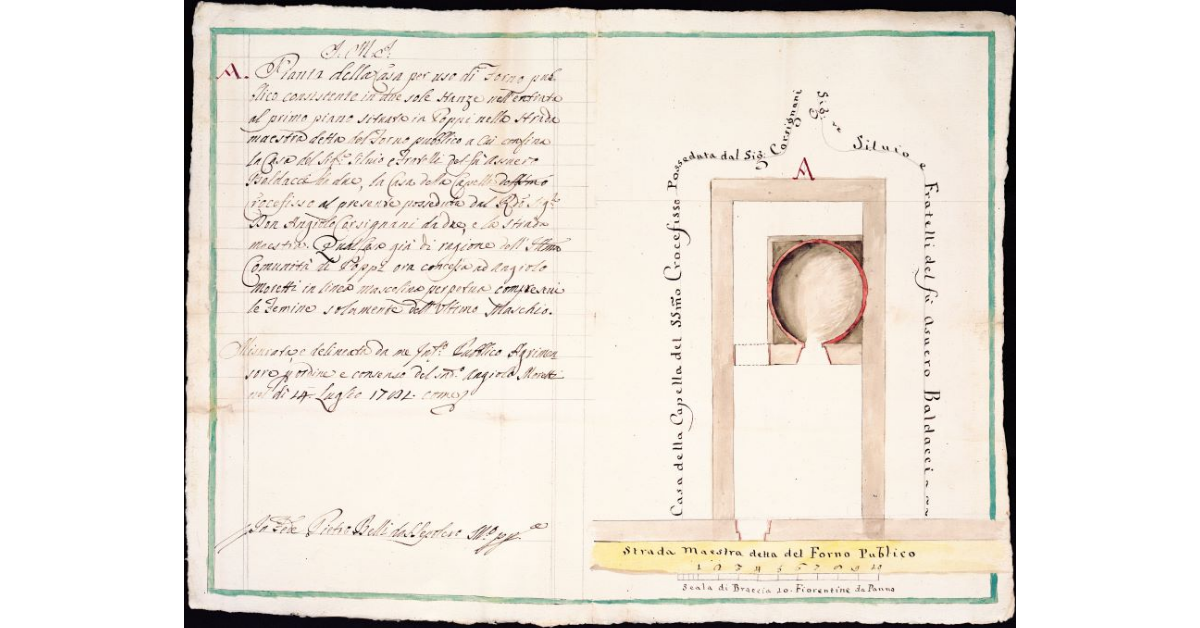 J. M. J.
A. Pianta della Casa per uso di Forno pub-
blico consistente in due sole stanze nell'entrata
al primo piano situata in Poppi nella Strada
maestra detta del Forno pubblico a cui confina
la Casa del Sig.e Silvio e Fratelli del fù Asuero
Baldacci da due, la Casa della Capella del SSmo
Crocefisso al presente posseduta dal Sig.e
Don Angiolo Corsignani da due, e la Strada
maestra. Qual Casa già di ragione dell'
Comunità di Poppi ora concessa ad Angiolo
Moretti in linea mascolina perpetua compresavi
le Femine solamente dell'Ultimo Maschio.
Misurata e delineata da me Pubblico Agrimen
sore ordine e consenso del Angiolo Moretti
di 14 Luglio
Io Pietro Belli
Casa della Capella del SSmo Crocefisso Posseduta dal Sig: Corsignani
Sig. re Silvio e Fratelli del fù Asuero Baldacci
A
Strada Maestra detta del Forno Publico
1 2 3 4 5 6 7 8 9 10
Scala di Braccia 10. Fiorentine da Panno